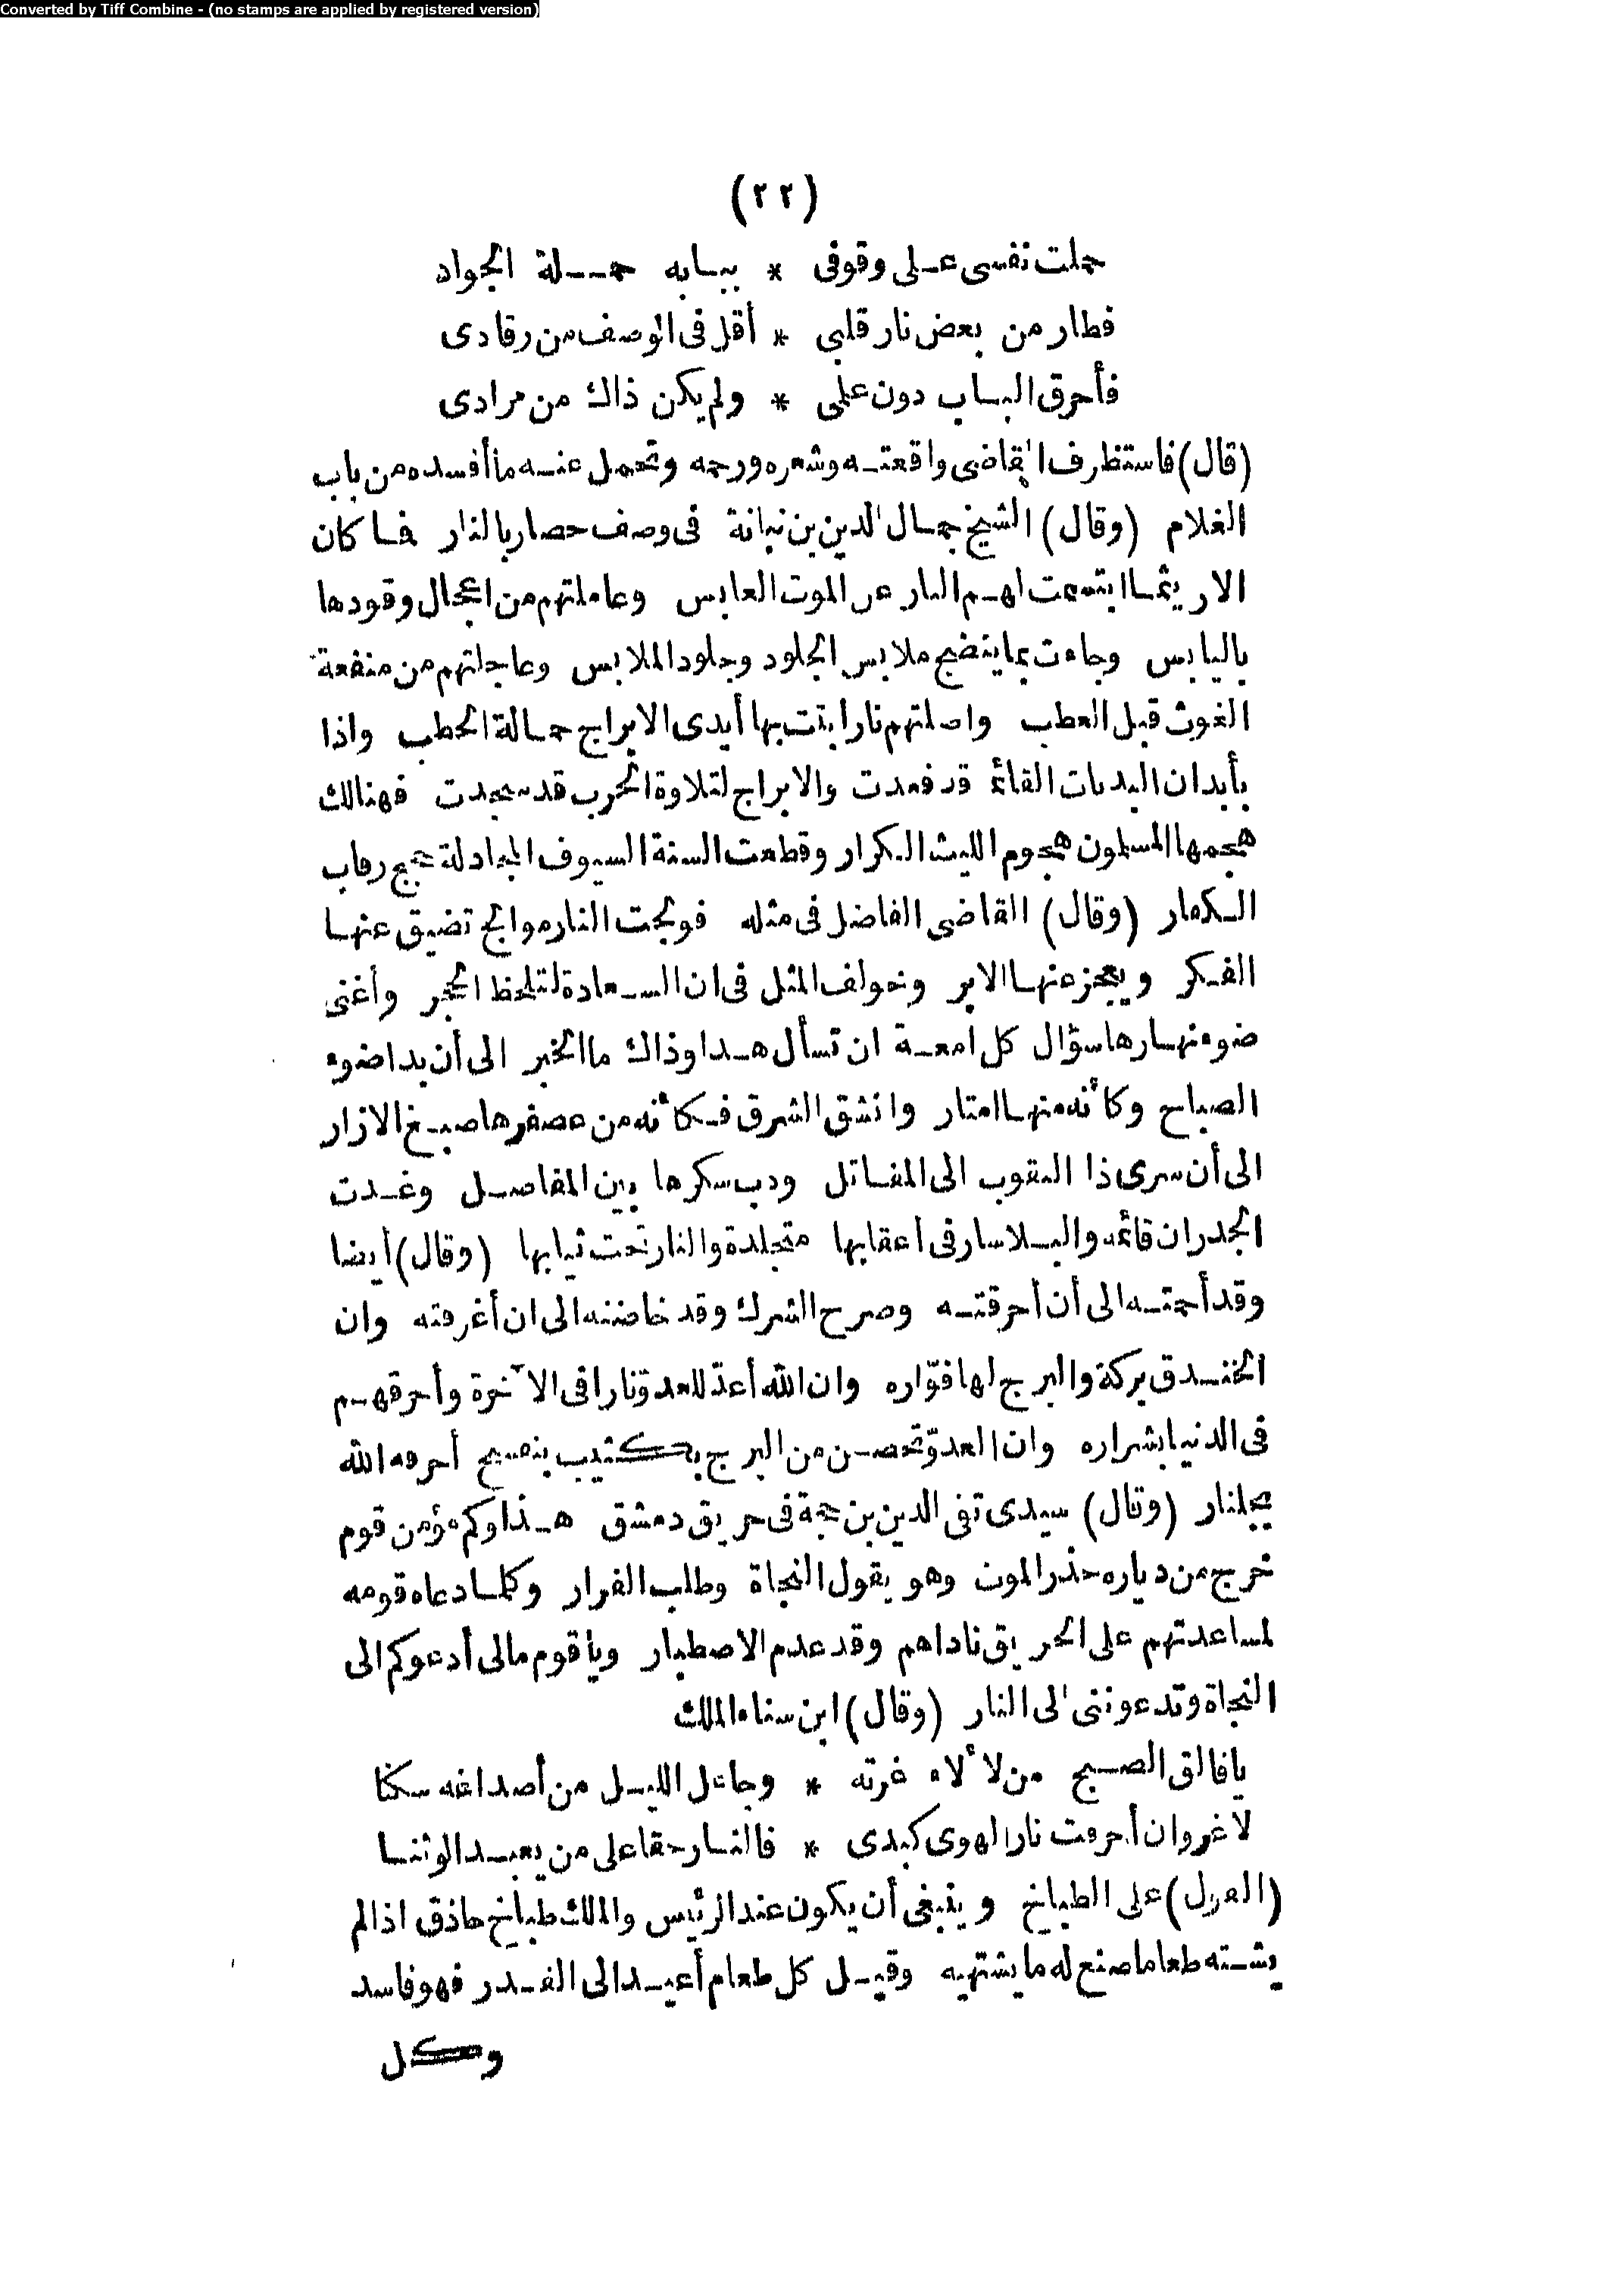 Converted by Tiff Combine - (no stamps are applied by registered version)
(٢٢)
حملت نفسى على وقوفى * ببابه حملة الجواد
فطار من بعض نار قلبى * أقل فى الوصف من رقادى
فأحرق الباب دون على * ولم يكن ذاك من مرادى
(قال) فاستظرف القاضى واقعته وشعره ورحمه وتحمل عنه ما أفسده من باب
الغلام (وقال) الشيخ جمال الدين بن نباتة فى وصف حصار بالنار فما كان
الا ريثما ابتسمت لهم النار عن الموت العابس وعاملتهم من اعجال وقودها
باليابس وجاءت بما ينضج ملابس الجلود وجلود الملابس وعاجلتهم من منفعة
الغوث قبل العطب واصلتهم نارا بتت بها أيدى الابراج حمالة الحطب واذا
بأبدان البدنات القائمة قد قعدت والابراج لتلاوة الحرب قد سجدت فهنالك
هجمها المسلمون هجوم الليث الكرار وقطعت السنة السيوف المجادلة حجج رقاب
الكفار (وقال) القاضى الفاضل فى مثله فولجت النار موالج تضيق عنها
الفكر ويعجز عنها الابر وخولف المثل فى ان السعادة لتلحظ الحجر وأغنى
ضوء نهارها سؤال كل امعة ان تسأل هذا وذاك ما الخبر الى أن بدا ضوء
الصباح وكأنه منها امتار وانشق الشرق فكأنه من عصفرها صبغ الازار
الى أن سرى ذا النقوب الى المقاتل ودب سكرها بين المفاصل وغدت
الجدران قائمة والبلاسار فى أعقابها متجلدة والنار تحت ثيابها (وقال) أيضا
وقد أجمته الى أن أحرقته وصرح الشرك وقد خاضنه الى ان أغرقته وان
الخندق بركة والبرج لها فوّاره وان الله أعدّ للعدوّ نارا فى الآخرة وأحرقهم
فى الدنيا بشراره وان العدوّ تحصن من البرج بكثيب أحرقه الله
بجلنار (وقال) سيدى تقى الدين بن حجة فى حريق دمشق هذا وكم مؤمن قوم
خرج من دياره حذر الموت وهو يقول النجاة وطلب الفرار وكلما دعاه قومه
لمساعدتهم على الحريق ناداهم وقد عدم الاصطبار ويا قوم مالى أدعوكم الى
النجاة وتدعوننى الى النار (وقال) ابن سناء الملك
يا فالق الصبح من لألاء غرته * وجاعل الليل من أصداغه سكنا
لا غرو ان أحرقت نار الهوى كبدى * فالنار حقا على من يعبد الوثنا
(القول) على الطباخ وينبغى أن يكون عند الرئيس والملك طباخ حاذق اذا لم
يشته طعاما صنع له ما يشتهيه وقيل كل طعام أعيد الى القدر فهو فاسد
وكل